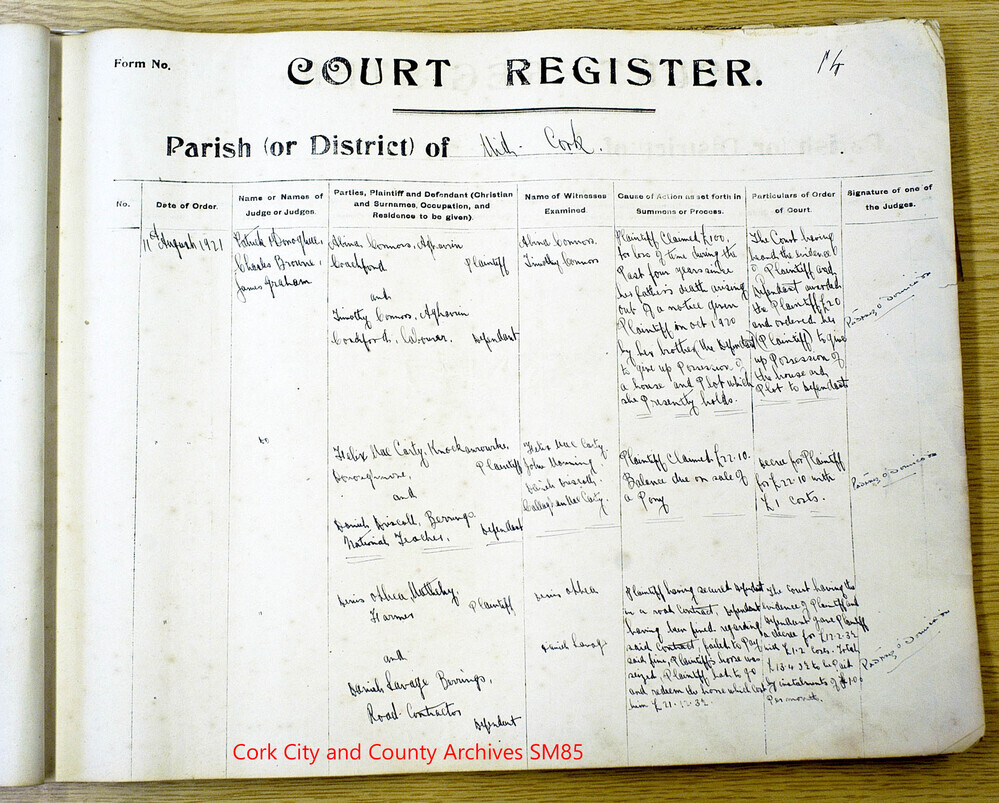 Form No.
COURT REGISTER.
14
Parish (or District) of Mid- Cork.
No.
Date of Order.
Name or Names of
Judge or Judges.
Parties, Plaintiff and Defendant (Christian
and Surnames, Occupation, and
Residence to be given).
Name of Witnesses
Examined
Cause of Action as set forth in
Summons or Process.
Particulars of Order
of Court.
Signature of one of
the Judges.
11th August 1921
Patrick O'Donoghue,
Charles Browne,
James Graham
Abina Connors, Aghavrin
Coachford Plaintiff
and
Timothy Connors, Aghavrin
Coachford, Labourer. Defendant
Abina Connors.
Timothy Connors
Plaintiff Claimed £100,
for loss of time during the
Past four years since
his father's death arising
out of a notice given
Plaintiff in Oct 1920
by her brother (the Defendant)
to give up Possession of
a house and Plot which
she Presently holds.
The Court having
heard the evidence
of Plaintiff and
Defendant awarded
the Plaintiff £20
and ordered her
(Plaintiff) to give
up Possession of
the house and
Plot to Defendant
" "
do
Felix Mac Carty, Knockanrourke,
Donoughmore, Plaintiff
and
Daniel Driscoll, Berrings
National Teacher, Defendant
Felix Mac Carty
John
Daniel Driscoll
Callaghan Mac Carty.
Plaintiff Claimed £22.10.
Balance due on sale of
a Pony
Decree for Plaintiff
for £22.10 with
£1 Costs.
"
Denis O'Shea, Matthehy,
Farmer Plaintiff
and
Daniel Savage Berrings,
Road Contractor
Defendant
Denis O'Shea
Daniel Savage
Plaintiff having secured Defendant
in a road Contract, Defendant
having been fined regarding
said Contract, failed to Pay
said fine, Plaintiff's horse was
seized, Plaintiff had to go
and redeem the horse which cost
him
The Court having the
evidence of Plaintiff and
Defendant gave Plaintiff
a decree for
with £1.2 Costs. Total
to be paid
by instalments of £10
Per month.
Cork City and County Archives SM85